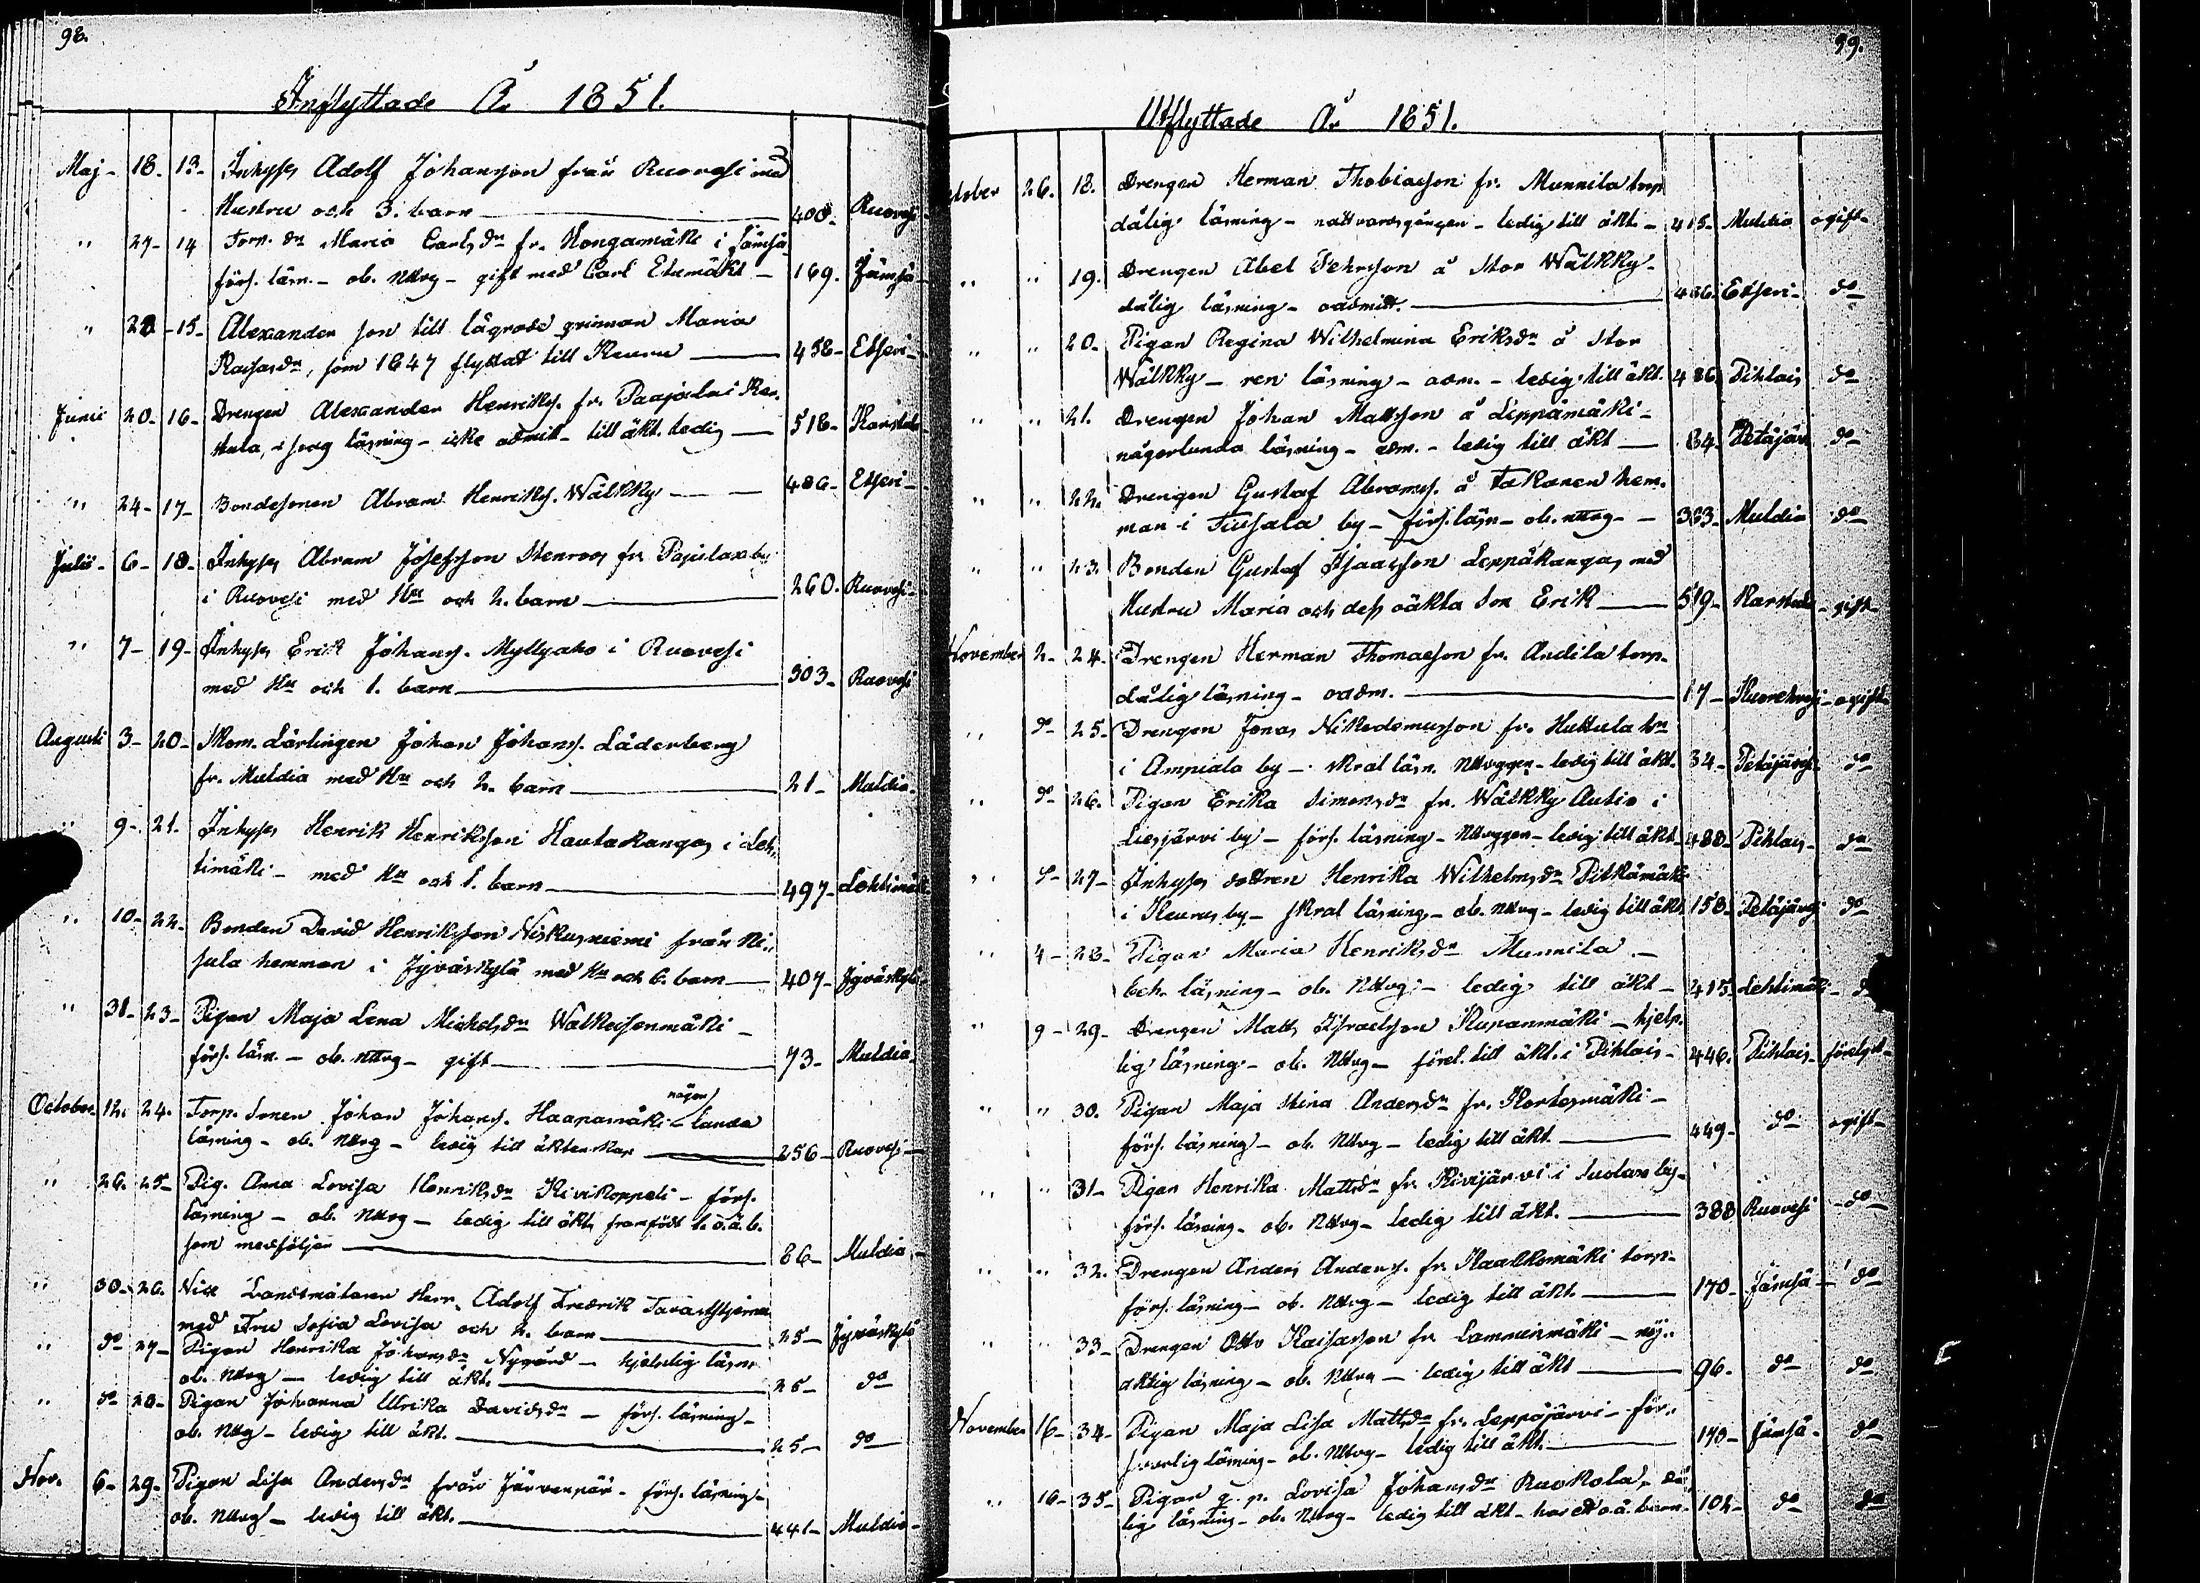 98.
Inflyttade År 1851.
Maj - 18. 13. Inhyses Adolf Johansson från Ruovesi med
Hustru och 3. barn 408. Ruovesi
" 27- 14 Torp. dr Maria Carlsdr fr. Kongamäki i Jämsä
förs. läsn. - ob. Nttvg - gift med Carl Etumäki - 169. Jämsä
" 28 - 15- Alexander son till lägrade qvinnan Maria
Kaisasdr, som 1847 flyttat till Keuru 458- Etseri-
Junii 20- 16- Drengen Alexander Henrikss. fr. Paajala i Kar-
stula, svag läsning - icke admit. till äkt. ledig 518- Karstula
" 24- 17- Bondesonen Abram Henrikss. Wälkky 486- Etseri-
Julii - 6- 18- Inhyses Abram Josefsson Stenroos fr. Pajulax by
i Ruovesi med Hu och 2. barn 260. Ruovesi-
" 7- 19- Inhyses Erik Johanss. Myllyaho i Ruovesi
med Hu och 1. barn 303- Ruovesi
Augusti 3- 20- Skom. Lärlingen Johan Johanss. Läderberg
fr. Muldia med Hu och 2. barn 21- Muldia.
" 9- 21. Inhyses Henrik Henriksson Hautakangas i Leh-
timäki - med Hu och 1. barn 497- Lehtimäki
" 10- 22. Bonden David Henriksson Niskusniemi från Ni-
sula hemman i Jyväskylä med Hu och 6. barn 407- Jyväskylä
" 31- 23- Pigan Maja Lena Michelsdr Walkeisenmäki -
förs. läsn. - ob. Nttvg - gift 73- Muldia.
October 12. 24. Torp. Sonen Johan Johanss. Haapamäki - någorlunda
läsning - ob. Nttvg - ledig till äktenskap 256- Ruovesi
" 26. 25- Pig. Anna Lovisa Henriksdr Kivikoppeli - förs.
läsning - ob. Nttvg - ledig till äkt, framfödt 1. o.ä.b.
som medföljer 86- Muldia
" 30- 26. Vice Landtmätaren Herr Adolf Fredrik Tavaststjerna
med Fru Sofia Lovisa och 2. barn 25- Jyväskylä
" do 27- Pigan Henrika Johansdr Nygård - hjelplig läsn.
ob. Nttvg - ledig till äkt. 25- do
" do 28- Pigan Johanna Ulrika Davidsdr - förs. läsning -
ob. Nttvg - ledig till äkt. 25- do
Nov. 6- 29- Pigan Lisa Andersdr från Järvenpää - förs. läsning -
ob. Nttvg - ledig till äkt. 441- Muldia-
99.
Utflyttade År 1851.
October 26. 18. Drengen Herman Thobiasson fr. Munnila torp
dålig läsning - nattvardsgången - ledig till äkt. - 415- Muldia ogift-
" " 19. Drengen Abel Pehrsson å Stor Wälkky -
dålig läsning - oadmitt. 486. Etseri- do
" " 20- Pigan Regina Wilhelmina Eriksdr å Stor
Wälkky - ren läsning - adm. - ledig till äkt. 486 Pihlais do
" " 21. Drengen Johan Mattsson å Leppämäki -
någorlunda läsning - adm. - ledig till äkt 84- Petäjäv. do
" " 22. Drengen Gustaf Abramss. å Takanen hem-
man i Tiusala by - förs. läsn - ob. nttvg - 363- Muldia do
" " 23. Bonden Gustaf Isaacsson Leppäkangas med
Hustru Maria och dess oäkta Son Erik 519- Karstula - gift
November 2- 24- Drengen Herman Thomasson fr. Andila torp-
dålig läsning - oadm. 17- Kuorehvesi - ogift
" do 25- Drengen Jonas Nikodemusson fr. Huttula hn
i Ampiala by - skral läsn. Nttvggen - ledig till äkt. 34- Petäjävesi do
" do 26. Pigan Erika Simonsdr fr. Wälkky Autio i
Liesjärvi by - förs. läsning - Nttvggen - ledig till äkt. 488- Pihlais- do
" do 27- Inhyses dottren Henrika Wilhelmsdr Pitkämäki
i Keuru by - skral läsning - ob. Nttvg - ledig till äkt 158- Petäjävesi do
" 4- 28- Pigan Maria Henriksdr Munnila -
beh. läsning - ob. Nttvg - ledig till äkt - 415- Lehtimäki - do
" 9- 29- Drengen Matts Israelsson Kupanmäki - hjelp-
lig läsning - ob. Nttvg - förel. till äkt. i Pihlais - 446. Pihlais- förelyst-
" " 30. Pigan Maja Stina Andersdr fr. Kortesmäki -
förs. läsning - ob. Nttvg - ledig till äkt. 449- do ogift-
" " 31- Pigan Henrika Mattsdr fr. Kivijärvi i Suolax by -
förs. läsning - ob. Nttvg - ledig till äkt. 388 Ruovesi do
" " 32. Drengen Anders Anderss. fr. Kaakkomäki torp-
förs. läsning - ob. Nttvg - ledig till äkt 170- Jämsä - do
" " 33- Drengen Otto Kaisasson fr Lamminmäki - nöj-
aktig läsning - ob. Nttvg - ledig till äkt 96- do do
November 16- 34- Pigan Maja Lisa Mattsdr fr. Leppäjärvi - för-
svarlig läsning - ob. Nttvg - ledig till äkt. 170- Jämsä- do
" 16- 35- Pigan q. p. Lovisa Johansdr Ruokola, då-
lig läsning - ob. Nttvg - ledig till äkt - har ett o.ä. barn 102- do do